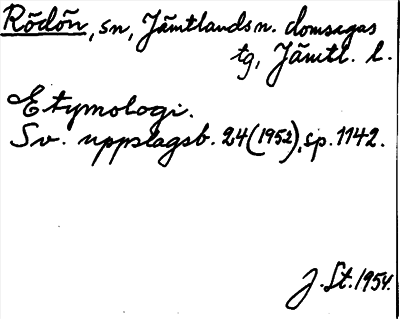 Rödön, sn, Jämtlands n. domsagas
tg, Jämtl. l.
Etymologi.
Sv. uppslagsb. 24(1952), sp. 1142.
J. St. 1954.